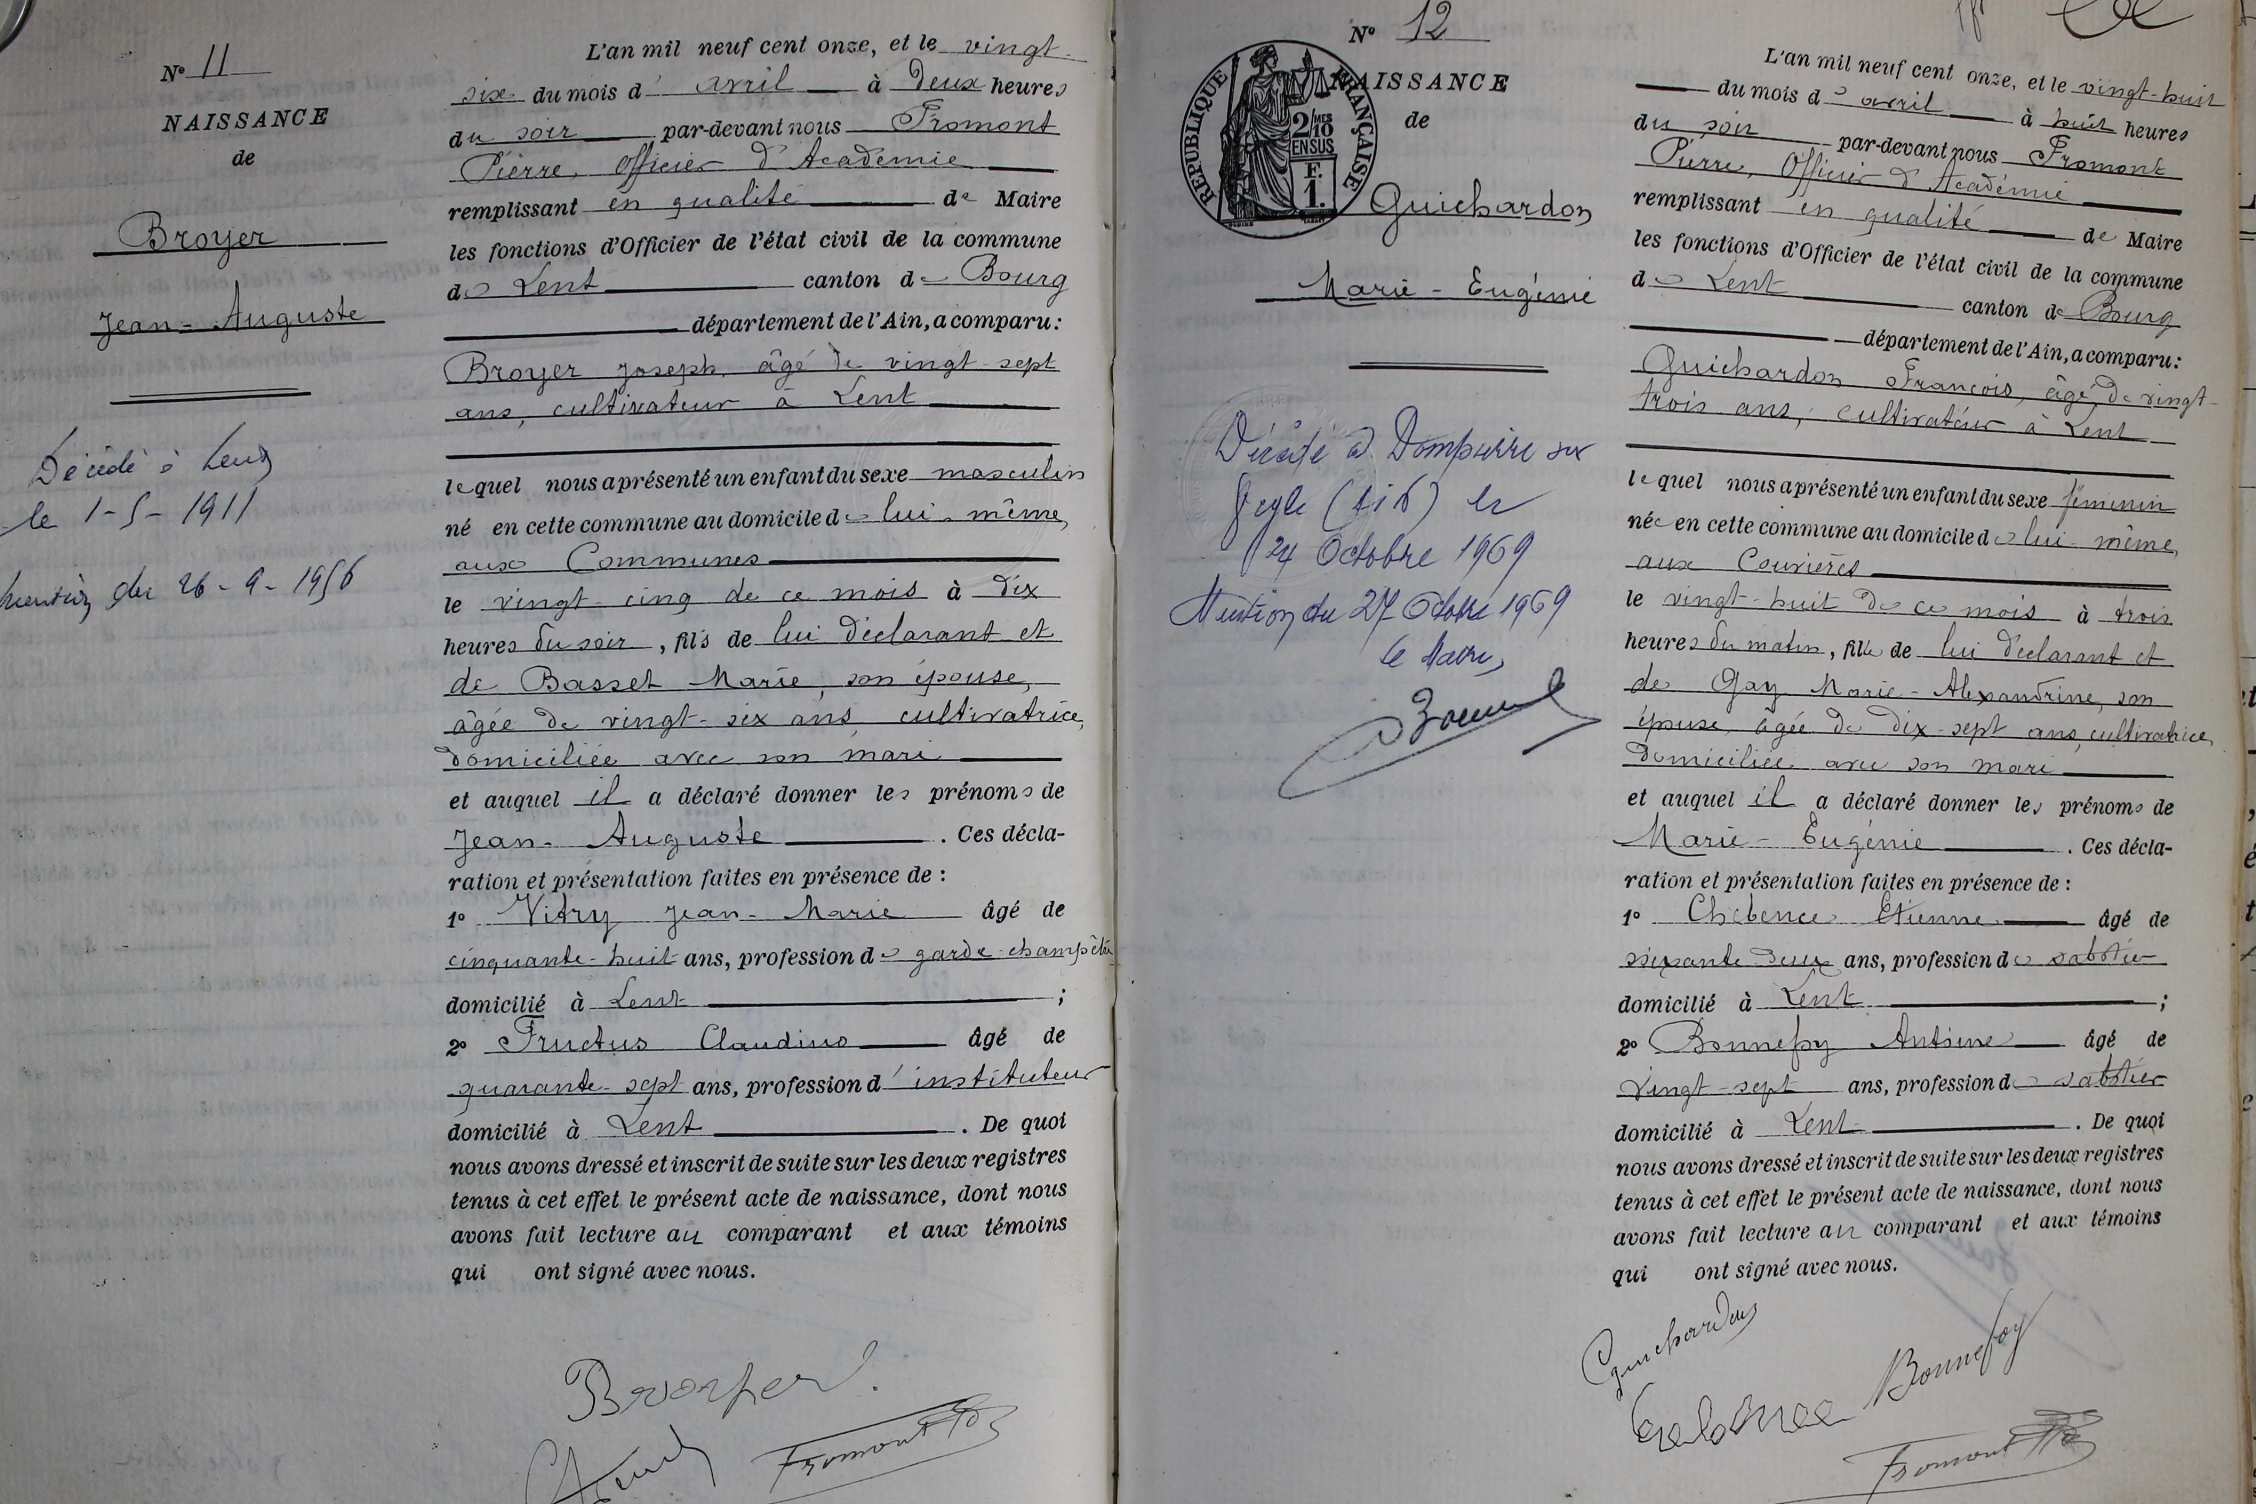 N° 11
NAISSANCE
de
Broyer
Jean-Auguste
Décédé à Lent
le 1-5-1911
Mention du 26-9-1956
L'an mil neuf cent onze, et le vingt-
six du mois d'avril à deux heures
du soir par-devant nous Fromont
Pierre, Officier d'Académie
remplissant en qualité de Maire
les fonctions d'Officier de l'état civil de la commune
de Lent canton de Bourg
département de l'Ain, a comparu :
Broyer Joseph, âgé de vingt-sept
ans, cultivateur à Lent
lequel nous a présenté un enfant du sexe masculin
né en cette commune au domicile de lui-même,
aux Communes
le vingt-cinq de ce mois à dix
heures du soir, fils de lui déclarant et
de Basset Marie, son épouse,
âgée de vingt-six ans, cultivatrice,
domiciliée avec son mari
et auquel il a déclaré donner les prénoms de
Jean-Auguste. Ces décla-
ration et présentation faites en présence de :
1° Vitry Jean-Marie âgé de
cinquante-huit ans, profession de garde-champêtre
domicilié à Lent ;
2° Fructus Claudius âgé de
quarante-sept ans, profession d'instituteur
domicilié à Lent. De quoi
nous avons dressé et inscrit de suite sur les deux registres
tenus à cet effet le présent acte de naissance, dont nous
avons fait lecture au comparant et aux témoins
qui ont signé avec nous.
Broyer
Fromont
N° 12
NAISSANCE
de
RÉPUBLIQUE FRANÇAISE
2/MES
10
EN SUS
F.
1.
Guichardon
Marie-Eugénie
Décédé à Dompierre sur
Veyle (Ain) le
24 Octobre 1969
Mention du 27 Octobre 1969
Le Maire,
L'an mil neuf cent onze, et le vingt-huit
du mois d'avril à huit heures
du soir par-devant nous Fromont
Pierre, Officier d'Académie
remplissant en qualité de Maire
les fonctions d'Officier de l'état civil de la commune
de Lent canton de Bourg
département de l'Ain, a comparu :
Guichardon François, âgé de vingt-
trois ans, cultivateur à Lent
lequel nous a présenté un enfant du sexe féminin
née en cette commune au domicile de lui-même,
aux Couvières
le vingt-huit de ce mois à trois
heures du matin, fille de lui déclarant et
de Gay Marie-Alexandrine, son
épouse, âgée de dix-sept ans, cultivatrice,
domiciliée avec son mari
et auquel il a déclaré donner les prénoms de
Marie-Eugénie. Ces décla-
ration et présentation faites en présence de :
1° Etienne âgé de
soixante-deux ans, profession de sabotier
domicilié à Lent ;
2° Bonnefoy Antoine âgé de
vingt-sept ans, profession de sabotier
domicilié à Lent. De quoi
nous avons dressé et inscrit de suite sur les deux registres
tenus à cet effet le présent acte de naissance, dont nous
avons fait lecture au comparant et aux témoins
qui ont signé avec nous.
Guichardon
Bonnefoy
Fromont